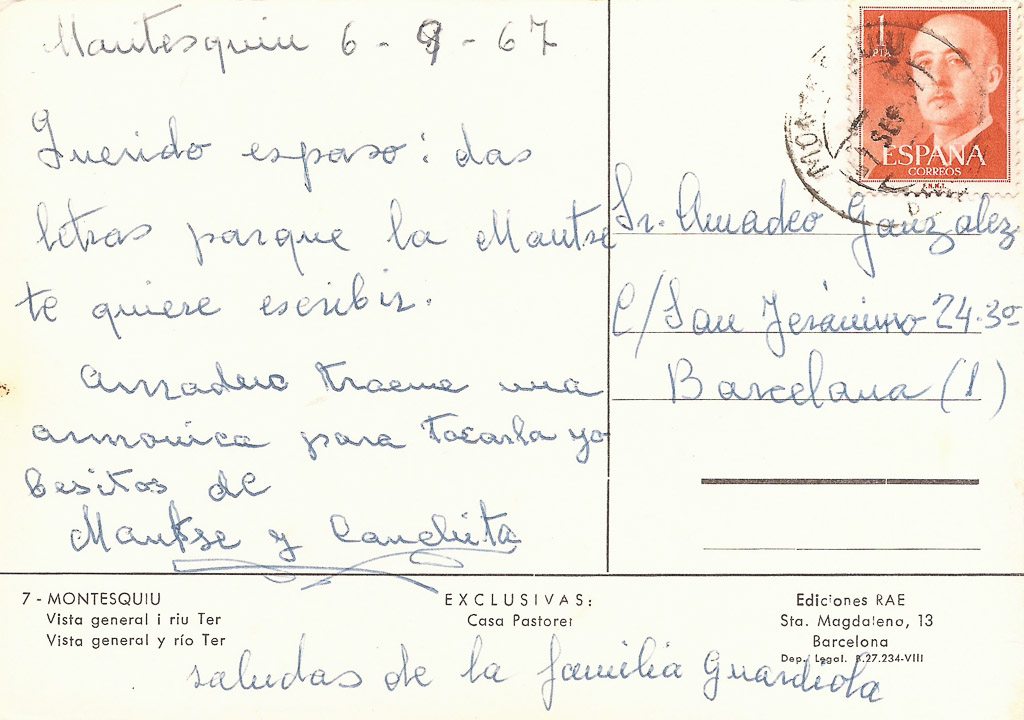 Montesquiu 6 - 9 - 67
Querido esposo: dos
letras porque la Montse
te quiere escribir.
Amadeo traeme una
armonica para tocarla yo
besitos de
Montse y Conchita
1
PTA
ESPAÑA
CORREOS
F.N.M.T.
SEP
Sr. Amadeo Gonzalez
C/San Jerónimo 24-3º
Barcelona (1)
7 - MONTESQUIU
Vista general i riu Ter
Vista general y río Ter
EXCLUSIVAS:
Casa Pastoret
Ediciones RAE
Sta. Magdalena, 13
Barcelona
Dep. Legal. B.27.234-VIII
saludos de la familia Guardiola